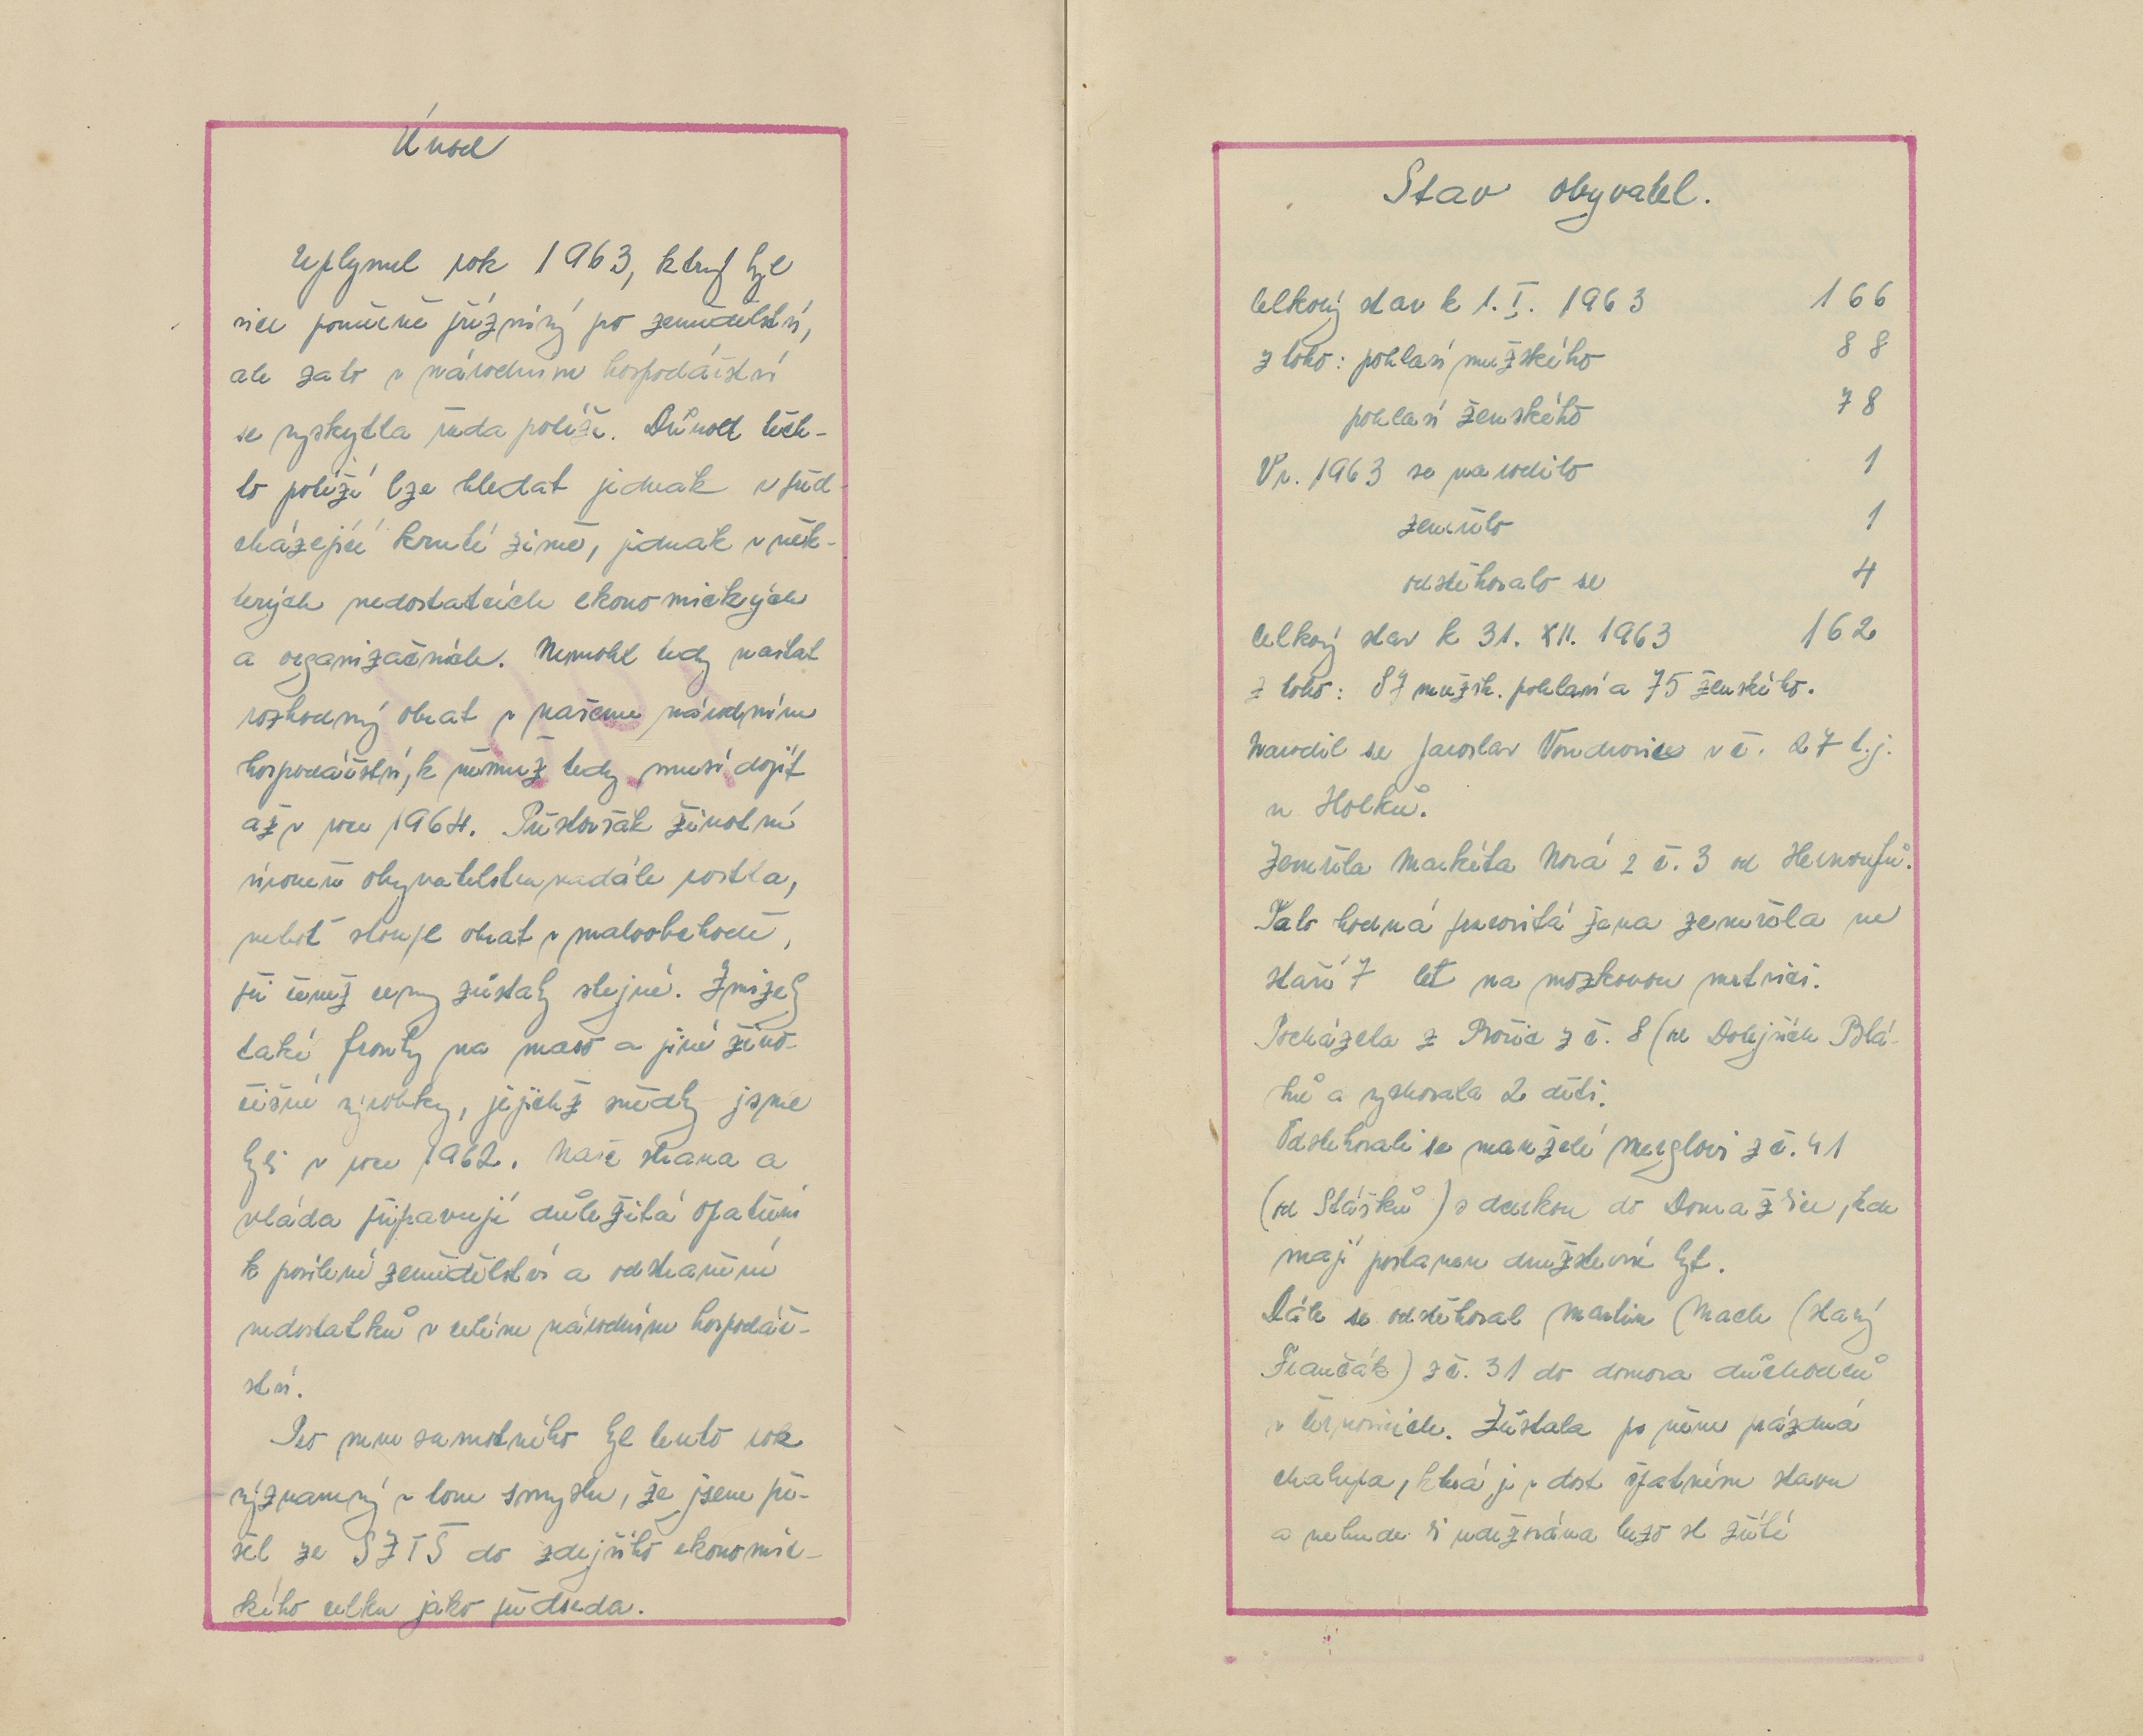 Úvod
Uplynul rok 1963, který byl
sice poměrně příznivý po zemědělství,
ale zato v národním hospodářství
se vyskytla řada potíží. Důvod těch-
to potíží lze hledat jednak v před-
cházející kruté zimě, jednak v něk-
terých nedostatcích ekonomických
a organizačních. Nemohl tedy nastat
rozhodný obrat v našem národním
hospodářství, k němuž tedy musí dojít
až v roce 1964. Přestoršák životní
úroveň obyvatelstva nadále rostla,
neboť stoupl obrat v maloobchodě,
při čemž ceny zůstaly stejné. Zmizely
také fronty na maso a jiné živo-
čišné výrobky, jejichž svědky jsme
byli v roce 1962. Naše strana a
vláda připravují důležitá opatření
k posílení zemědělství a odstranění
nedostatků v celém národním hospodář-
ství.
Pro mne samotného byl tento rok
významný v tom smyslu, že jsem při-
šel ze SZTŠ do zdejšího ekonomic-
kého celku jako předseda.
Stav obyvatel.
Celkový stav k 1. I. 1963 166
z toho: pohlaví mužského 88
pohlaví ženského 78
V r. 1963 se narodilo 1
zemřelo 1
odstěhovalo se 4
Celkový stav k 31. XII. 1963 162
z toho: 87 mužsk. pohlaví a 75 ženského.
Narodil se Jaroslav Vondrovic v č. 27 t.j.
u Holků.
Zemřela Markéta Nová z č. 3 od
Tato hodná pracovitá žena zemřela ve
stáří 7 let na mozkovou mrtvici.
Pocházela z z č. 8 (od Dolejších Blá-
hů a vychovala 2 děti.
Odstěhovali se manželé Merglovi z č. 41
(od Stášků) s dcerkou do Domažlic, kde
mají postaven družstevní byt.
Dále se odstěhoval Martin Mach (starý
Francák) z č. 31 do domova důchodců
v Černovicích. Zůstala po něm prázdná
chalupa, která je v dost špatném stavu
a nebude-li udržována brzo se zřítí